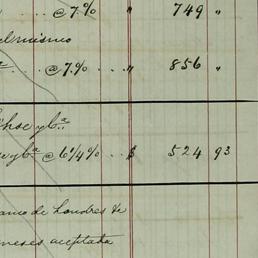 @ 7.% " 749 "
el mismo
@ 7.% " 856 "
y Cª
y Cª @ 6¼% $ 524 93
Banco de Londres &
meses aceptada